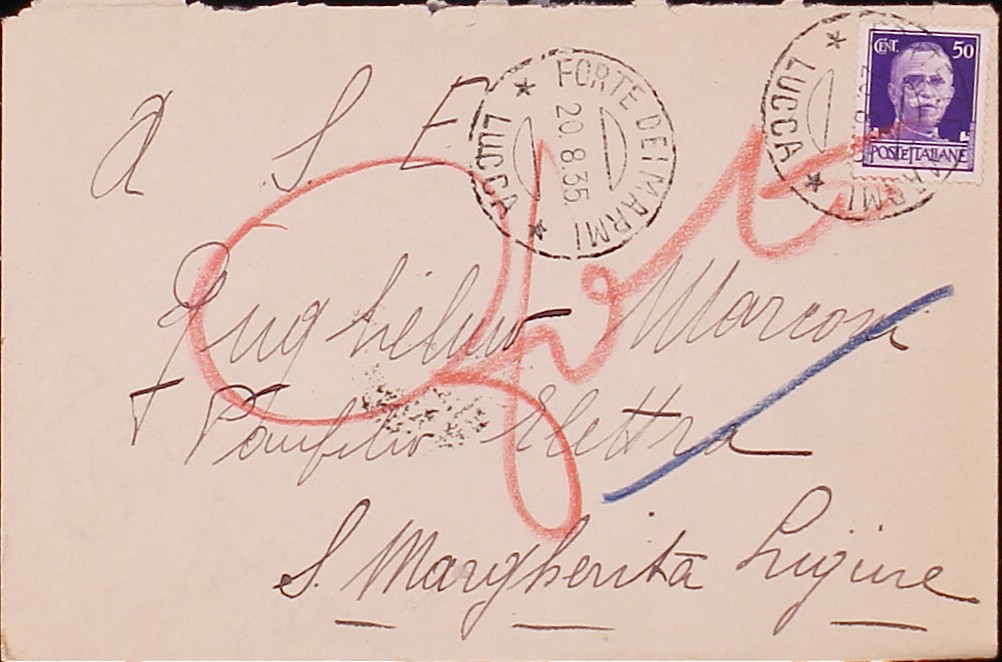 CENT. 50
POSTE ITALIANE
FORTE DEI MARMI
20.8.35
LUCCA
LUCCA
A S E
Guglielmo Marconi
Panfilio Elettra
S. Margherita Ligure